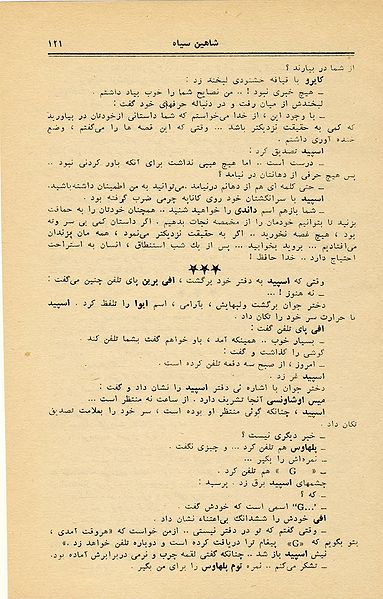 ۱۲۱ شاهین سیاه
از شما در بیارند ؟
کایرو با قیافه خشنودی لبخند زد :
ـ هیچ خبری نبود ! .. من نصایح شما را خوب بیاد داشتم .
لبخندش از میان رفت و در دنباله حرفهای خود گفت :
ـ با وجود این ، از خدا می‌خواستم که شما داستانی از خودتان در بیاورید
که کمی به حقیقت نزدیکتر باشد ... وقتی که این قصه ها را می‌گفتم ، وضع
خنده آوری داشتم .
اسپید تصدیق کرد :
ـ درست است .. اما هیچ عیبی نداشت برای آنکه باور کردنی نبود .
پس هیچ حرفی از دهانتان در نیامد ؟
ـ حتی کلمه ای هم از دهانم در نیامد . می‌توانید به من اطمینان داشته باشید.
اسپید با سرانگشتان خود روی کاناپه چرمی ضرب گرفته بود .
ـ شما بازهم اسم داندی را خواهید شنید .. همچنان خودتان را به حماقت
بزنید تا بتوانیم خودمان را از مخمصه نجات بدهیم . اگر داستان کمی بی سر وته
بود ، هیچ غصه نخورید .. اگر به حقیقت نزدیکتر می‌نمود ، همه مان بزندان
می‌افتادیم ... بروید بخوابید ... پس از یك شب استنطاق ، انسان به استراحت
احتیاج دارد .. خدا حافظ !
★★★
وقتی که اسپید به دفتر خود برگشت ، افی پرین پای تلفن چنین می‌گفت :
ـ نه هنوز ! ...
دختر جوان برگشت و لبهایش ، بآرامی ، اسم ایوا را تلفظ کرد . اسپید
با حرارت سر خود را تکان داد .
افی پای تلفن گفت :
ـ بسیار خوب .. همینکه آمد ، باو خواهم گفت بشما تلفن کند .
گوشی را گذاشت و گفت :
ـ امروز ، از صبح سه دفعه تلفن کرده است .
اسپید غر زد .
دختر جوان با اشاره ئی دفتر اسپید را نشان داد و گفت :
میس اوشاونسی آنجا تشریف دارد . از ساعت نه منتظر است ...
اسپید ، چنانکه گوئی منتظر او بوده است ، سر خود را بعلامت تصدیق
تکان داد .
ـ خبر دیگری نیست ؟
ـ پلهاوس هم تلفن کرد ... و چیزی نگفت .
ـ نمره‌اش را بگیر ...
ـ « G » هم تلفن کرد .
چشمهای اسپید برق زد . پرسید :
ـ که ؟
ـ «...G» اسمی است که خودش گفت .
افی خودش را ششدانگ بی‌اعتناء نشان داد .
ـ وقتی گفتم که تو در دفتر نیستی .. ازمن خواست که «هر وقت آمدی ،
بتو بگویم که «G» پیغام ترا دریافت کرده است و دوباره تلفن خواهد زد .»
نیش اسپید باز شد .. چنانکه گفتی لقمه چرب و نرمی در برابرش آماده بود.
ـ تشکر می‌کنم .. نمره توم پلهاوس را برای من بگیر .